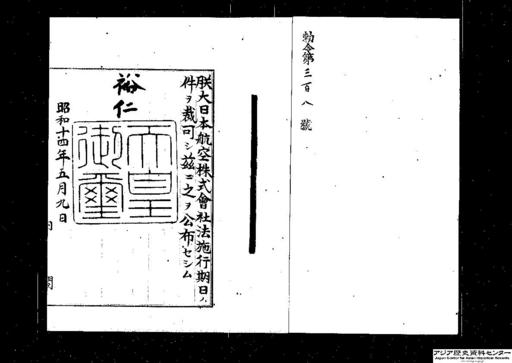 勅令第三百八號
朕大日本航空株式會社法施行期日ノ
件ヲ裁可シ茲ニ之ヲ公布セシム
裕仁
天皇
御璽
昭和十四年五月九日
内閣
アジア歴史資料センター
Japan Center for Asian Historical Records